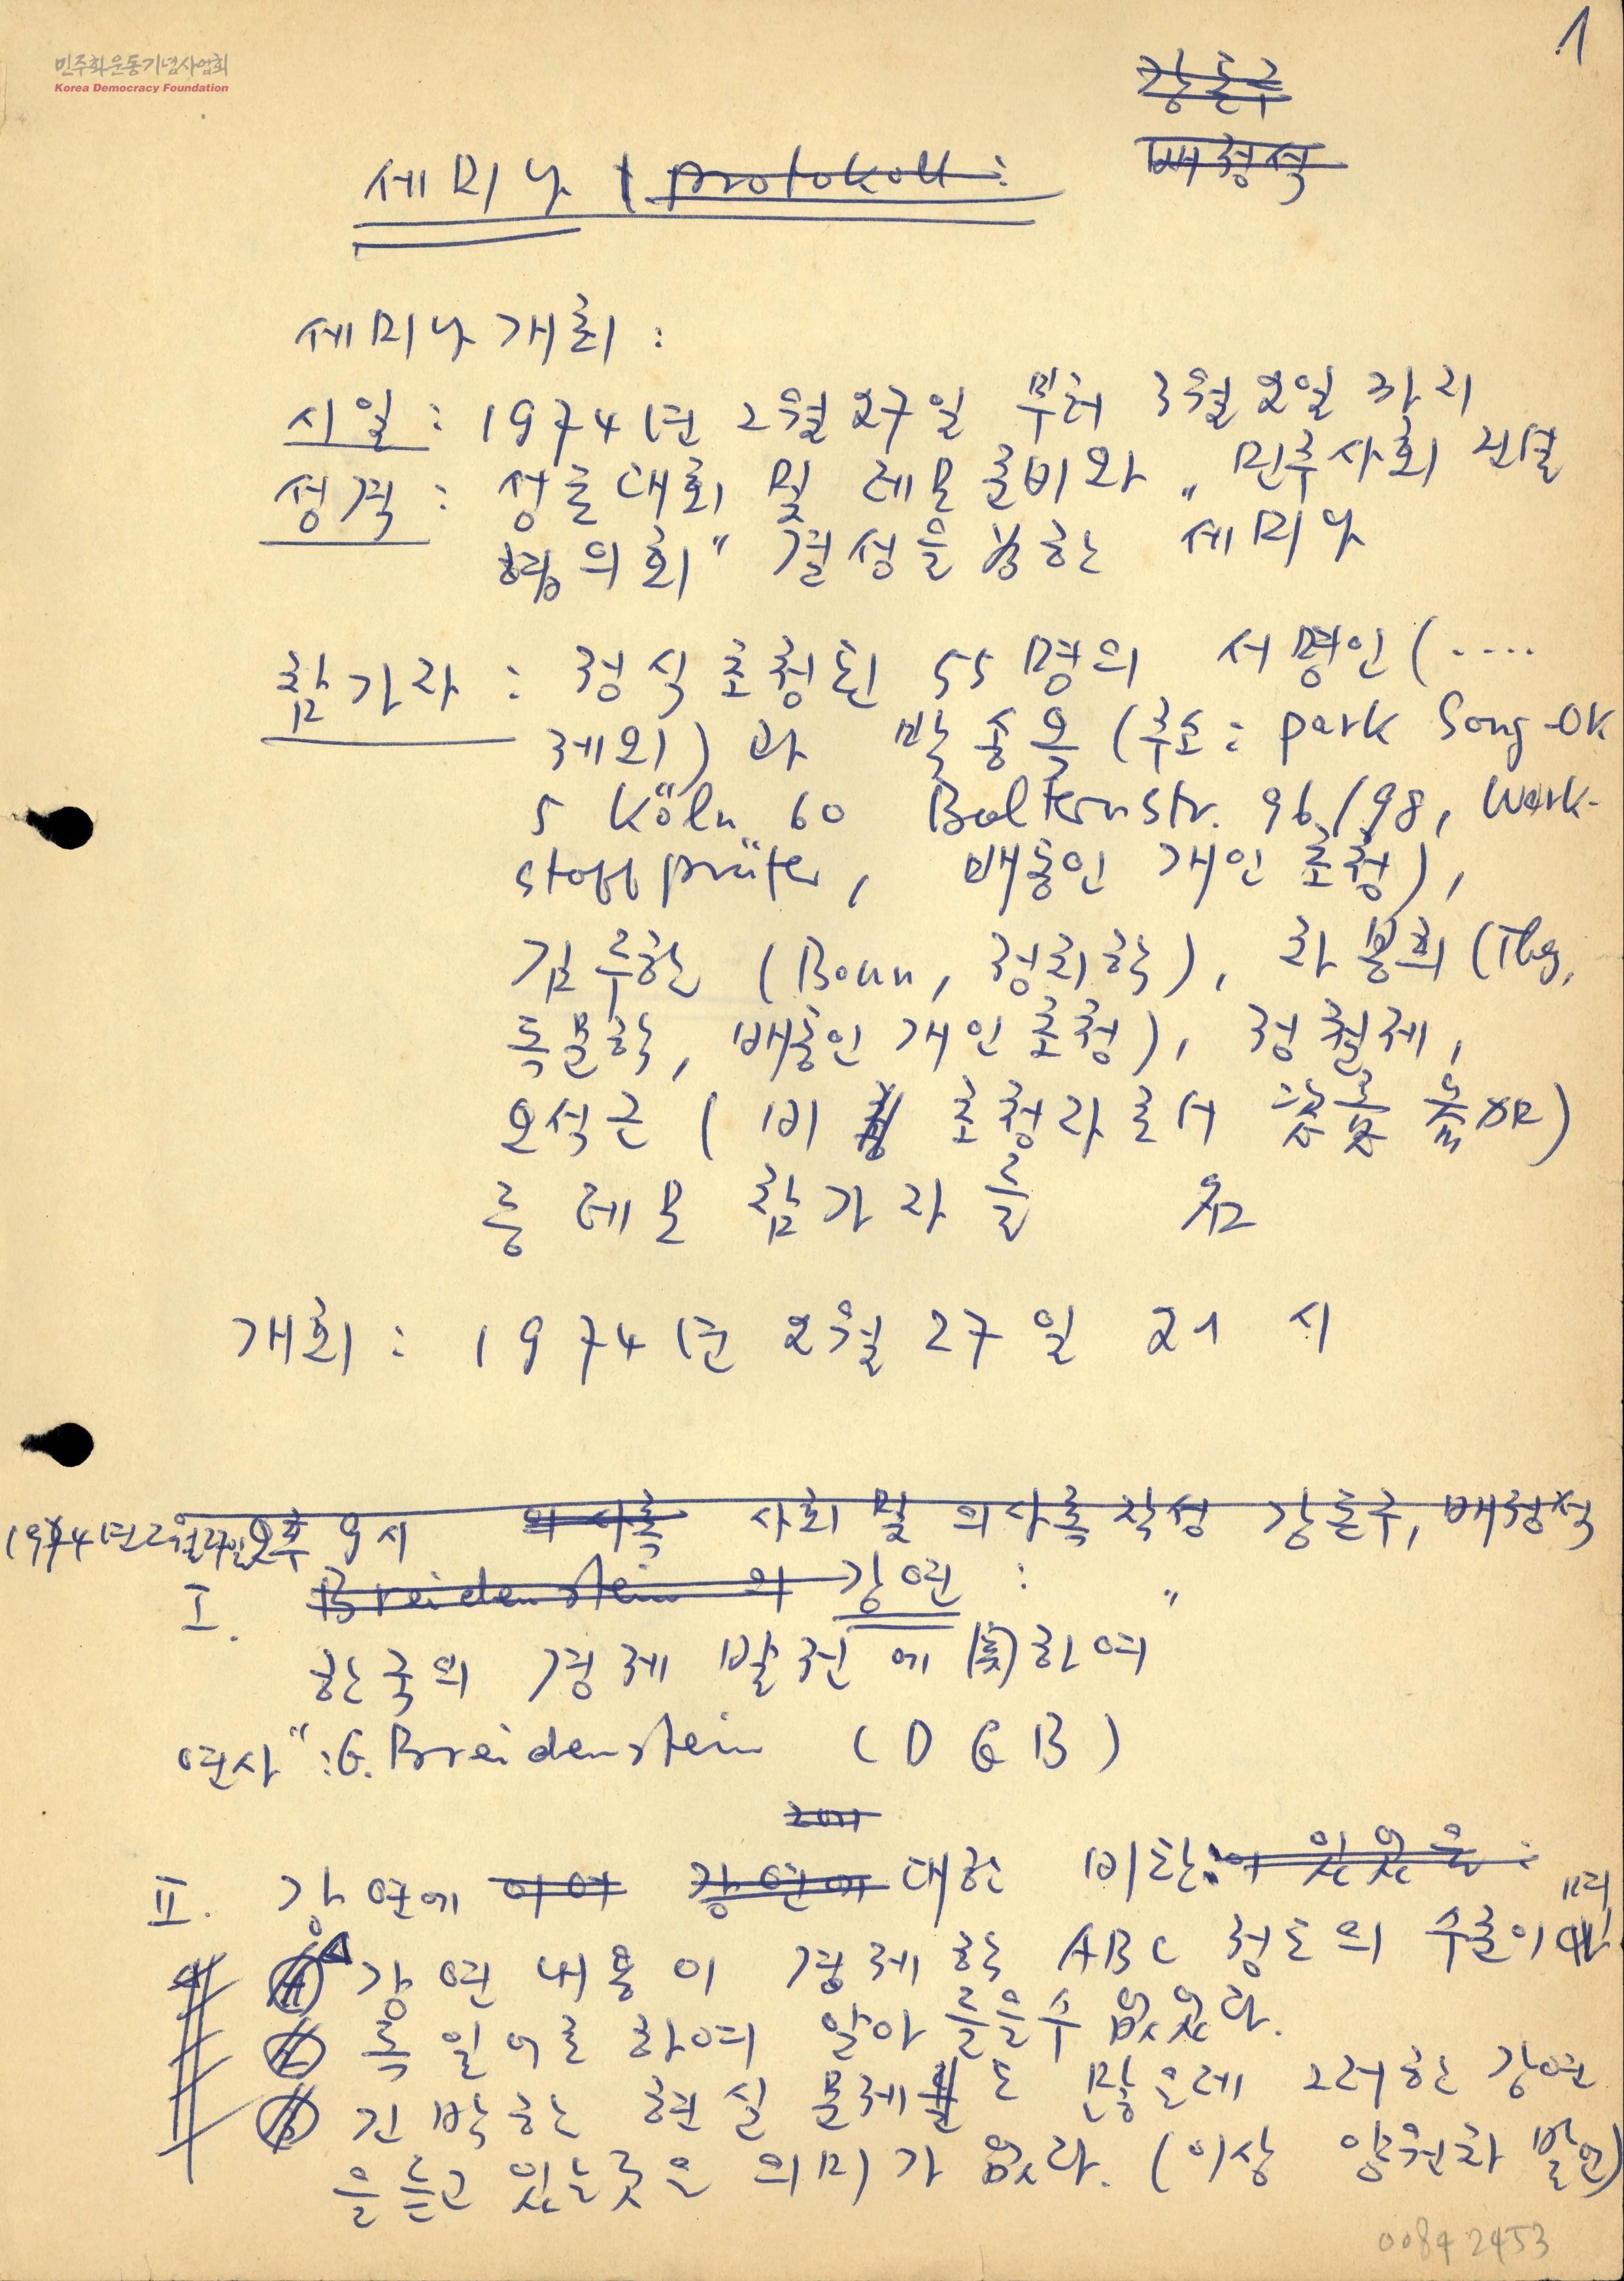 1
민주화운동기념사업회
Korea Democracy Foundation
강돈구
배정석
세미나 protokoll :
세미나 개회 :
시일 : 1974년 2월 27일 부터 3월 2일 까지
성격 : 성토대회 및 데모 준비와 „민주사회 건설
협의회" 결성을 위한 세미나
참가자 : 정식 초청된 55명의 서명인 (....
제외) 과 박송옥 (주소 : park Song-OK
5 Köln 60 Boltensternstr. 96/98, Werk-
stoffprüfer, 배동인 개인 초청),
김주한 (Bonn, 정치학), 차 (Tbg,
독문학, 배동인 개인초청), 정철제,
오석근 (비 초청자로서
등 데모 참가자
개회 : 1974년 2월 27일 21 시
1974년 2월 27일 오후 9시 의사록 사회 및 의사록 작성 강돈구, 배정석
I. Breidenstein 의 강연 : "
한국의 경제 발전에 관하여
연사 " : G. Breidenstein (DGB)
II. 강연에 이어 강연에 대한 비판: 이 있었음 :
강연 내용이 경제학 ABC 정도의 수준이며
독일어로 하여 알아 들을수 없었다.
긴박한 현실 문제도 많은데 그러한 강연
을 듣고 있는것은 의미가 없다. (이상 양원차 발언)
00842453